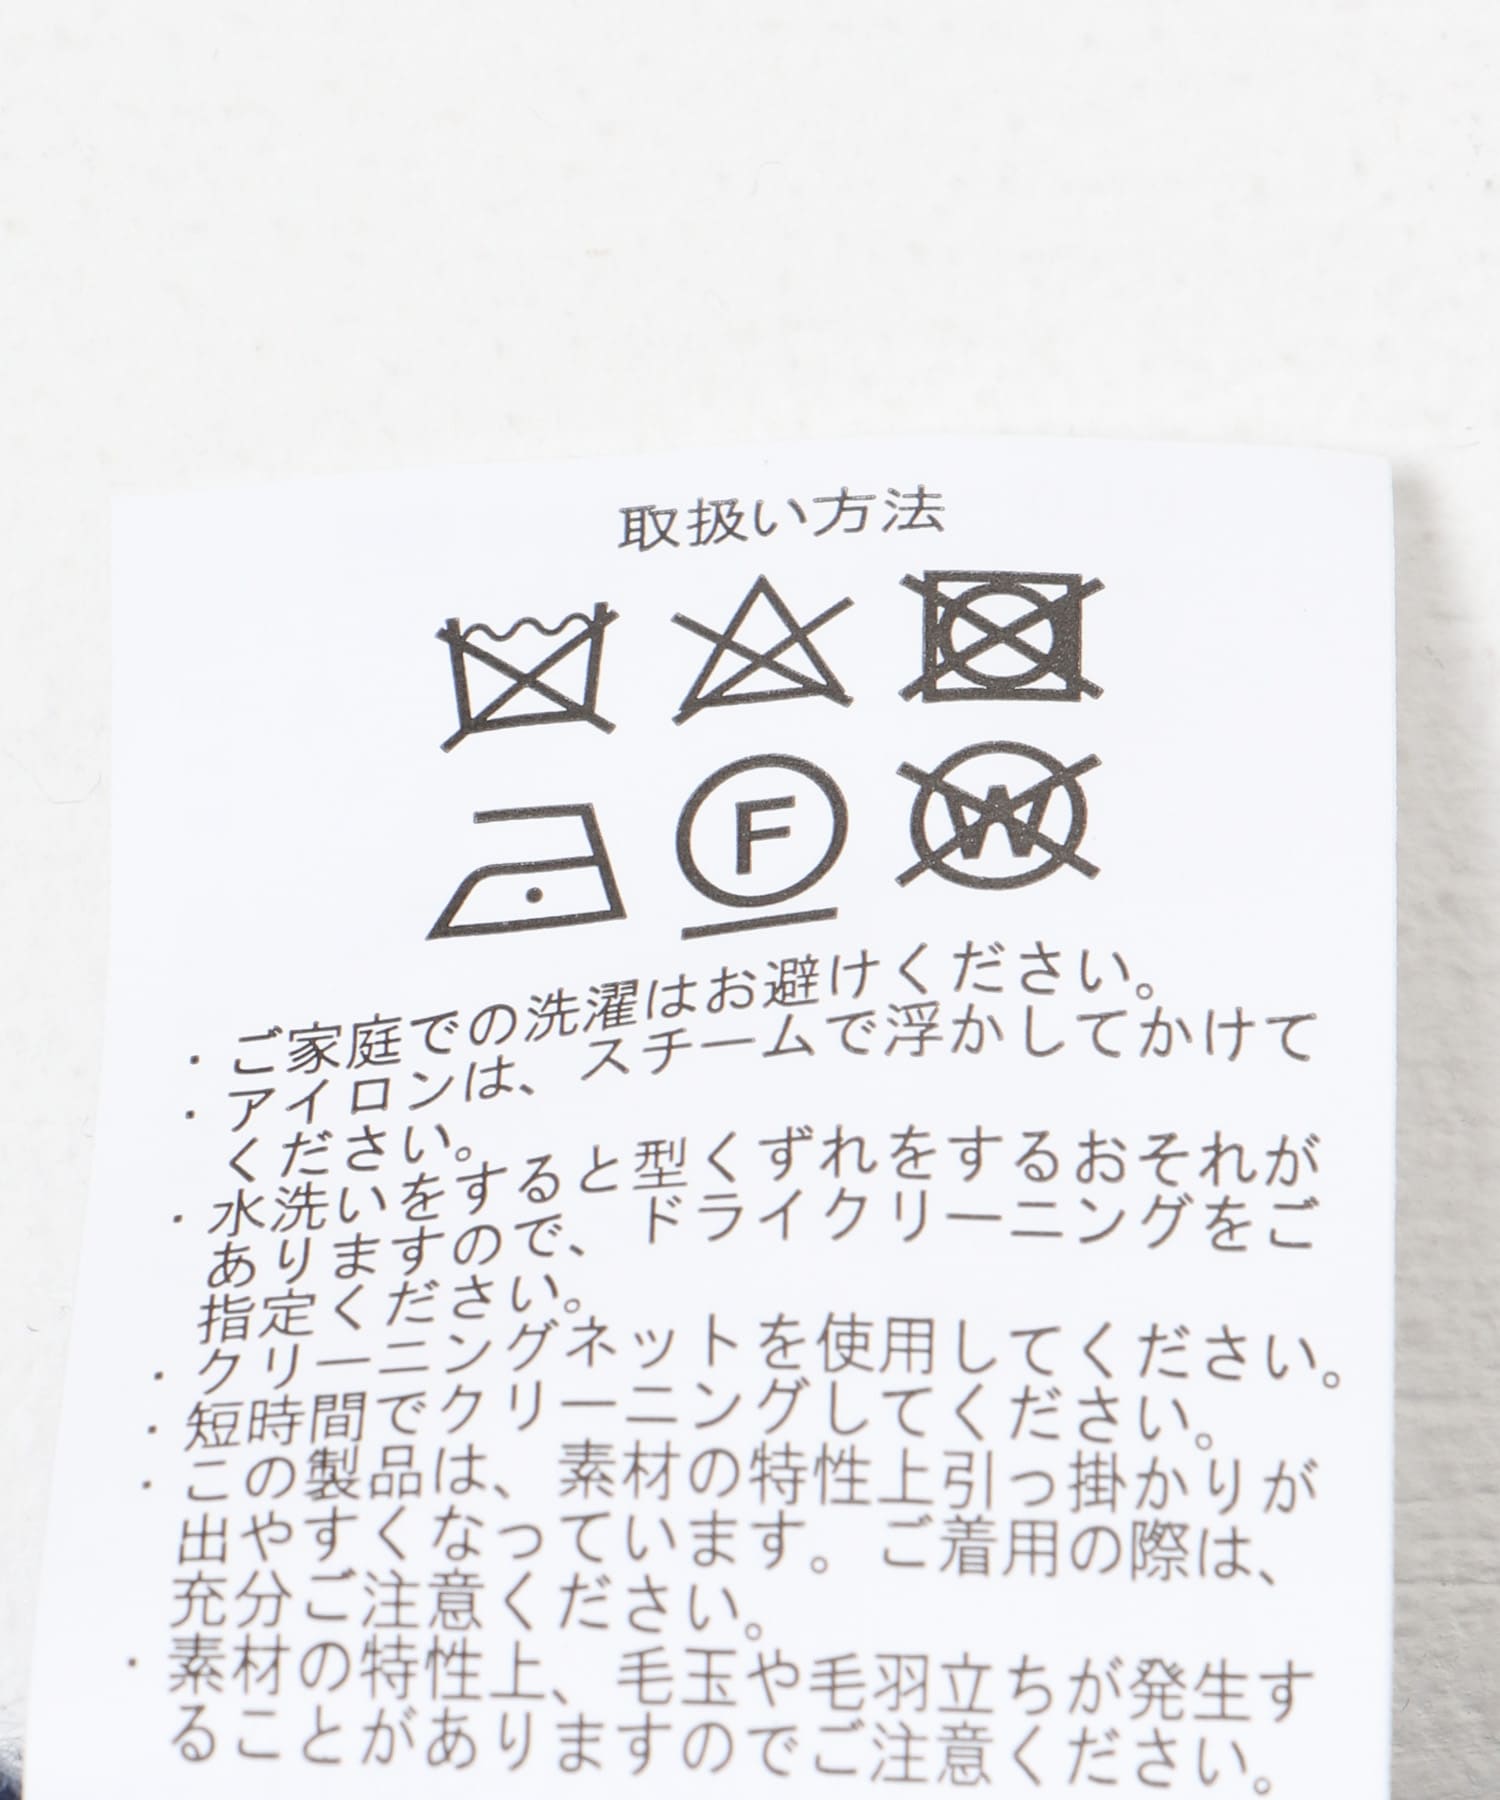 取扱い方法
F W
・ご家庭での洗濯はお避けください。
・アイロンは、スチームで浮かしてかけて
ください。
・水洗いをすると型くずれをするおそれが
ありますので、ドライクリーニングをご
指定ください。
・クリーニングネットを使用してください。
・短時間でクリーニングしてください。
・この製品は、素材の特性上引っ掛かりが
出やすくなっています。ご着用の際は、
充分ご注意ください。
・素材の特性上、毛玉や毛羽立ちが発生す
ることがありますのでご注意ください。